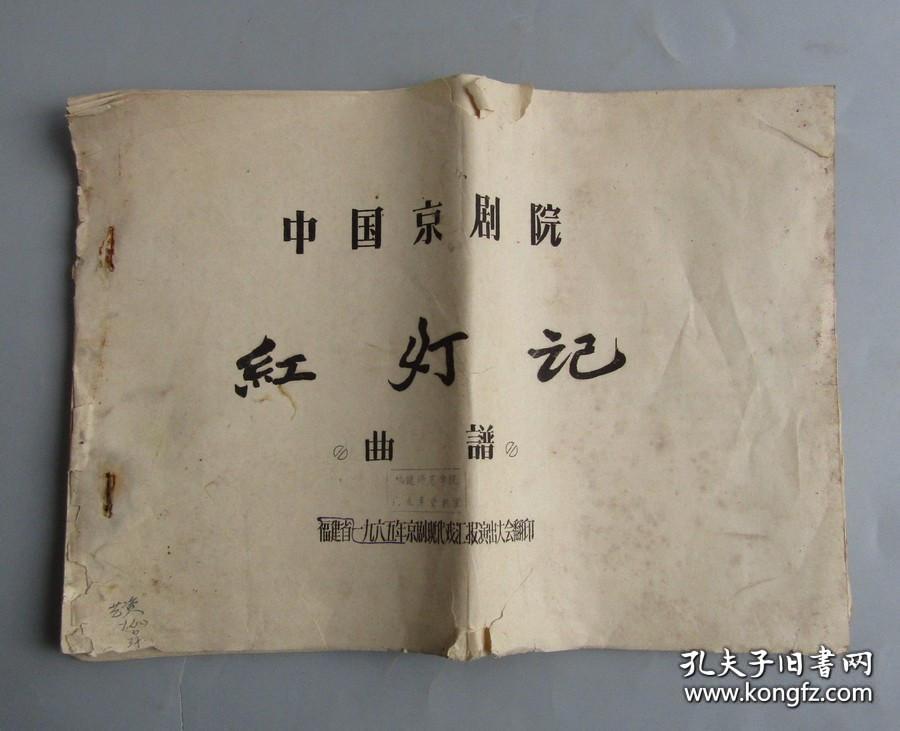 中国京剧院
紅灯记
曲譜
福建省一九六五年京剧现代戏汇报演出大会翻印
孔夫子旧書网
www.kongfz.com